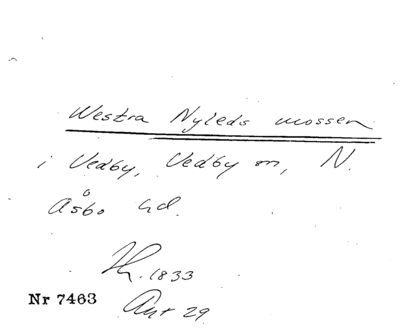 Westra Nyleds mossen
i Vedby, Vedby sn, N.
Åsbo hd.
1833
Nr 7463
Akt 29